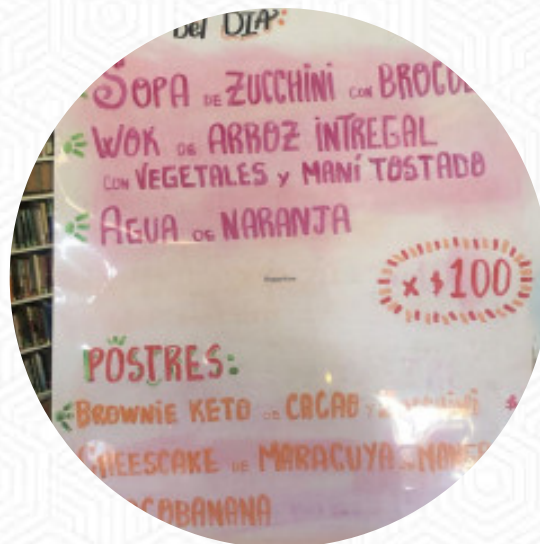 Del DIA:
SOPA DE ZUCCHINI CON
WOK DE ARROZ INTREGAL
CON VEGETALES y MANÍ TOSTADO
AGUA DE NARANJA
x $100
POSTRES:
BROWNIE KETO DE CACAO y
DE MARACUYA